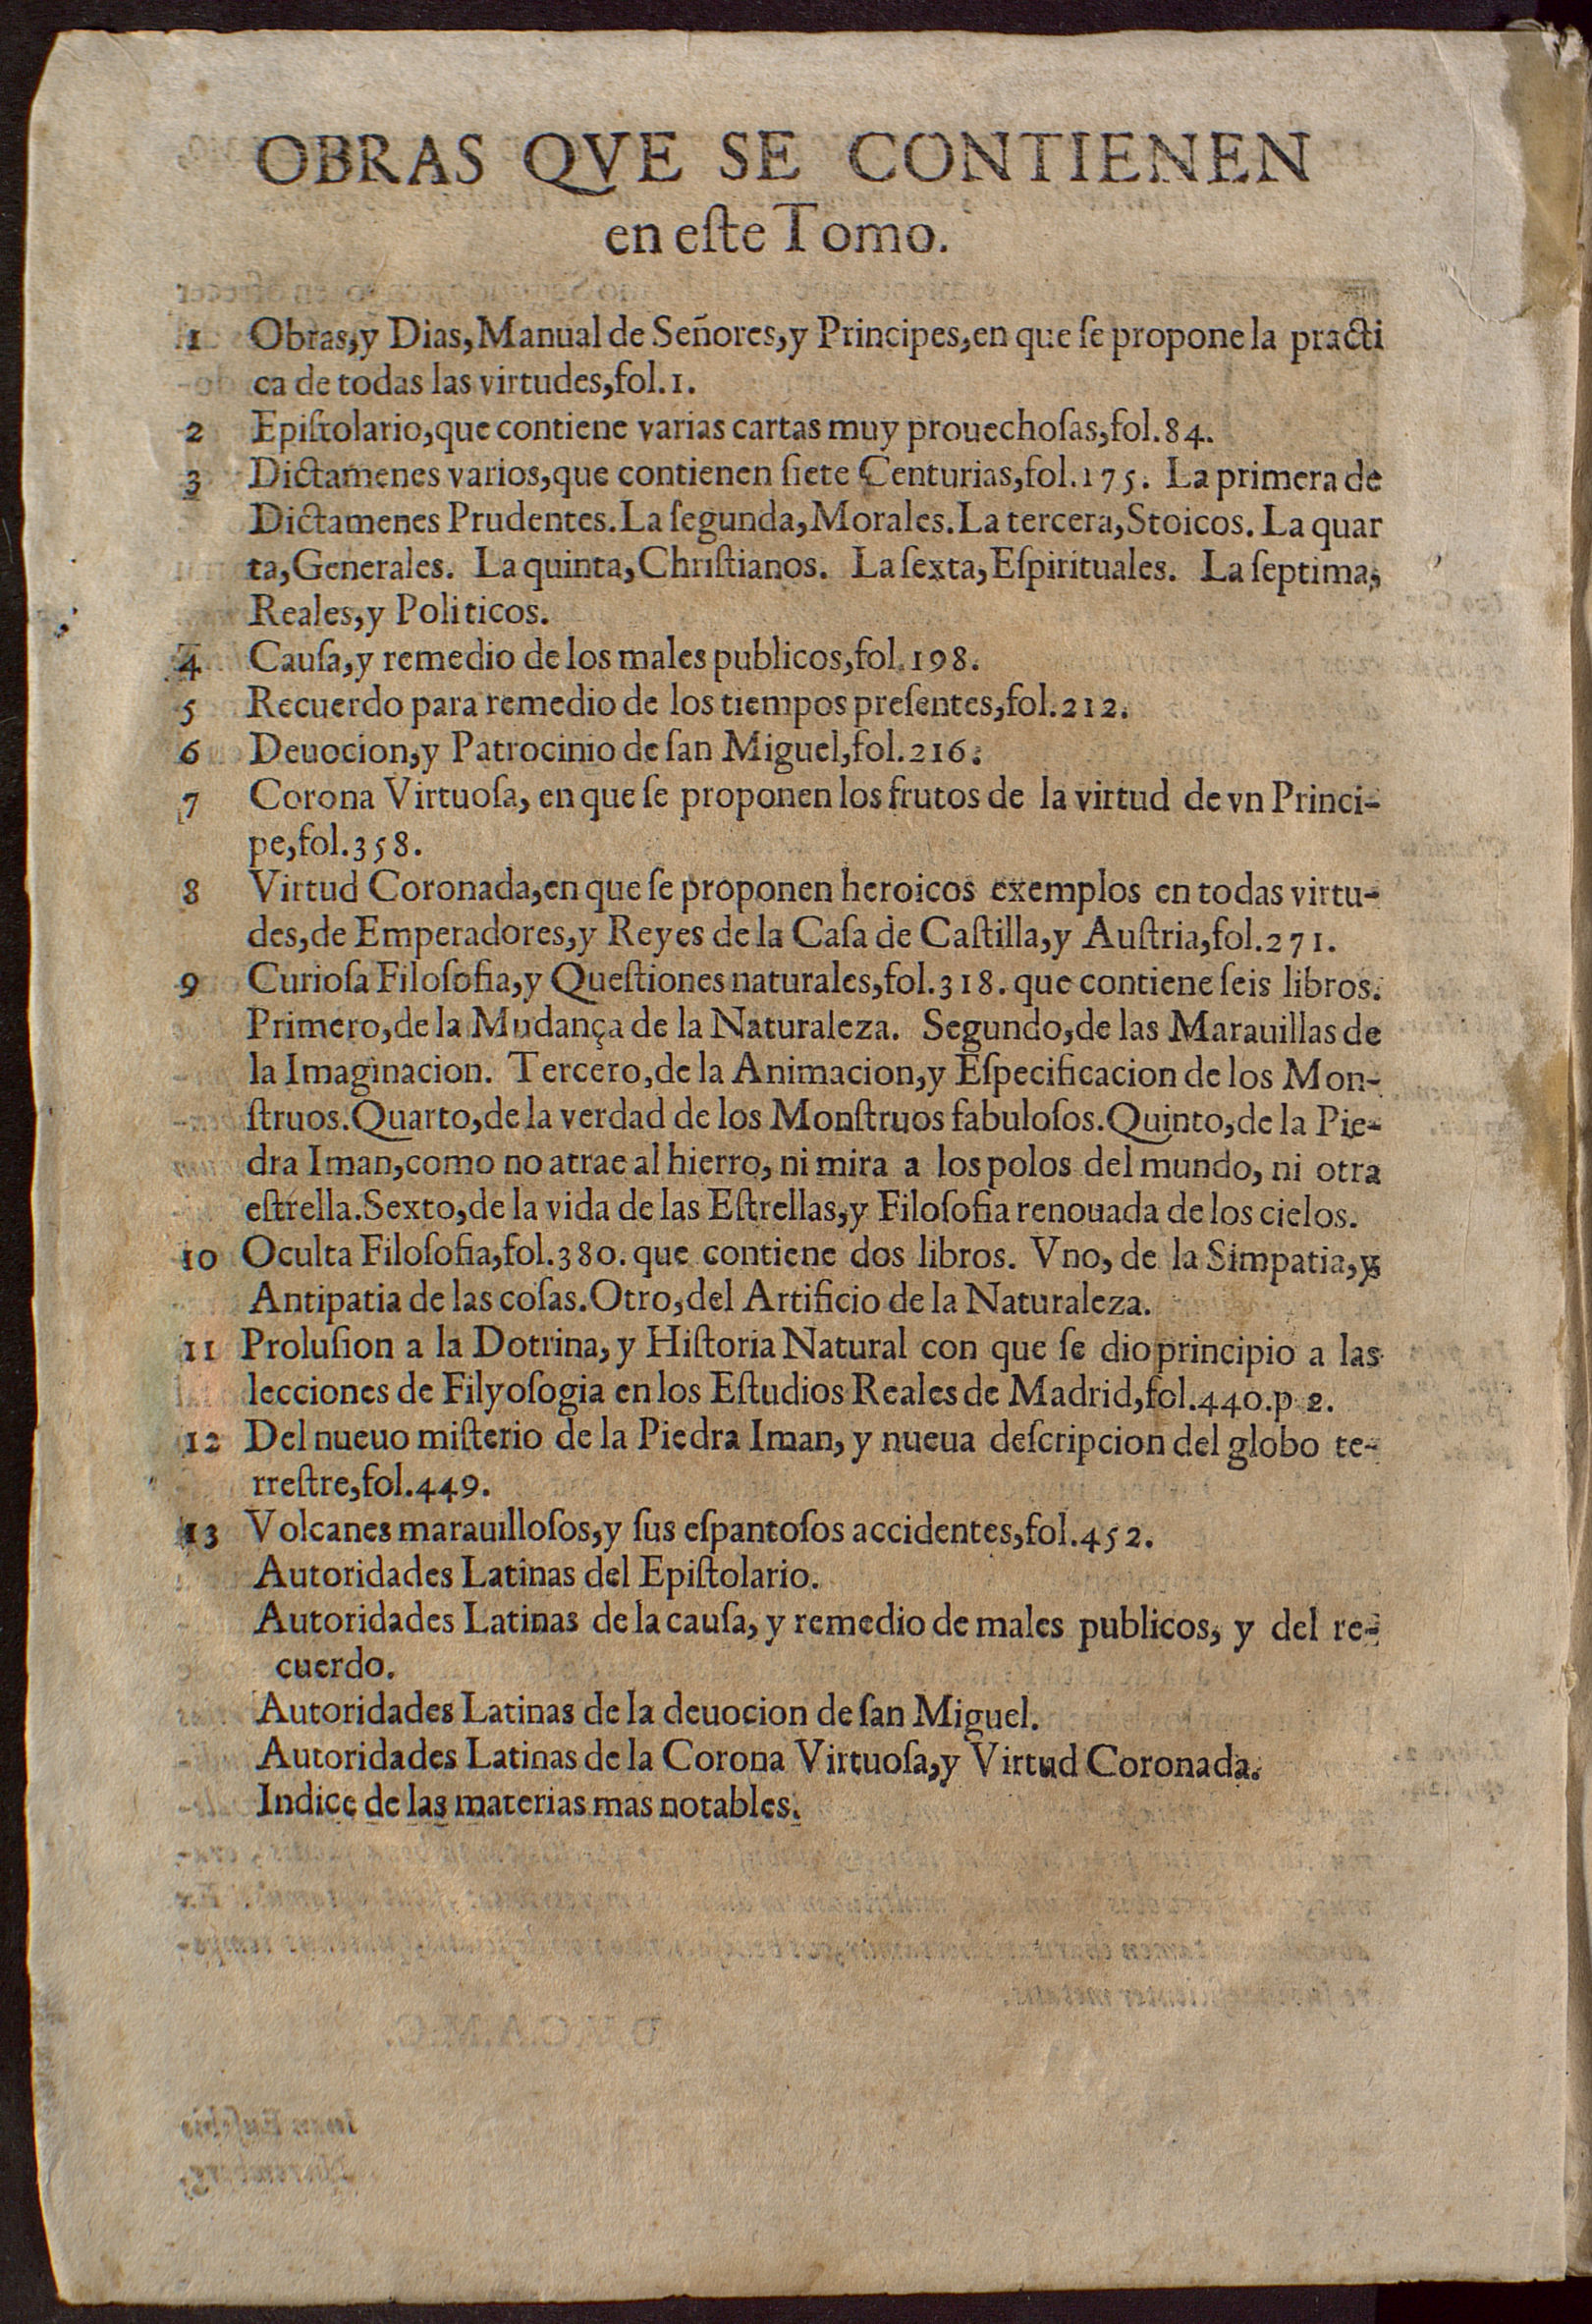 OBRAS QVE SE CONTIENEN
en eſte Tomo.
1 Obras,y Dias,Manual de Señores,y Principes,en que ſe propone la practi
ca de todas las virtudes,fol.1.
2 Epiſtolario,que contiene varias cartas muy prouechoſas,fol.84.
3 Dictamenes varios,que contienen ſiete Centurias,fol.175. La primera de
Dictamenes Prudentes.La ſegunda,Morales.La tercera,Stoicos. La quar
ta,Generales. La quinta,Chriſtianos. La ſexta,Eſpirituales. La ſeptima,
Reales,y Politicos.
4 Cauſa,y remedio de los males publicos,fol.198.
5 Recuerdo para remedio de los tiempos preſentes,fol.212.
6 Deuocion,y Patrocinio de ſan Miguel,fol.216.
7 Corona Virtuoſa, en que ſe proponen los frutos de la virtud de vn Princi-
pe,fol.358.
8 Virtud Coronada,en que ſe proponen heroicos exemplos en todas virtu-
des,de Emperadores,y Reyes de la Caſa de Caſtilla,y Auſtria,fol.271.
9 Curioſa Filoſofia,y Queſtiones naturales,fol.318. que contiene ſeis libros.
Primero,de la Mudança de la Naturaleza. Segundo,de las Marauillas de
la Imaginacion. Tercero,de la Animacion,y Eſpecificacion de los Mon-
ſtruos.Quarto,de la verdad de los Monſtruos fabuloſos.Quinto,de la Pie-
dra Iman,como no atrae al hierro, ni mira a los polos del mundo, ni otra
eſtrella.Sexto,de la vida de las Eſtrellas,y Filoſofia renouada de los cielos.
10 Oculta Filoſofia,fol.380. que contiene dos libros. Vno, de la Simpatia,y
Antipatia de las coſas.Otro,del Artificio de la Naturaleza.
11 Proluſion a la Dotrina, y Hiſtoria Natural con que ſe dio principio a las
lecciones de Filyoſogia en los Eſtudios Reales de Madrid,fol.440.p 2.
12 Del nueuo miſterio de la Piedra Iman, y nueua deſcripcion del globo te-
rreſtre,fol.449.
13 Volcanes marauilloſos,y ſus eſpantoſos accidentes,fol.452.
Autoridades Latinas del Epiſtolario.
Autoridades Latinas de la cauſa, y remedio de males publicos, y del re-
cuerdo.
Autoridades Latinas de la deuocion de ſan Miguel.
Autoridades Latinas de la Corona Virtuoſa,y Virtud Coronada.
Indice de las materias mas notables.